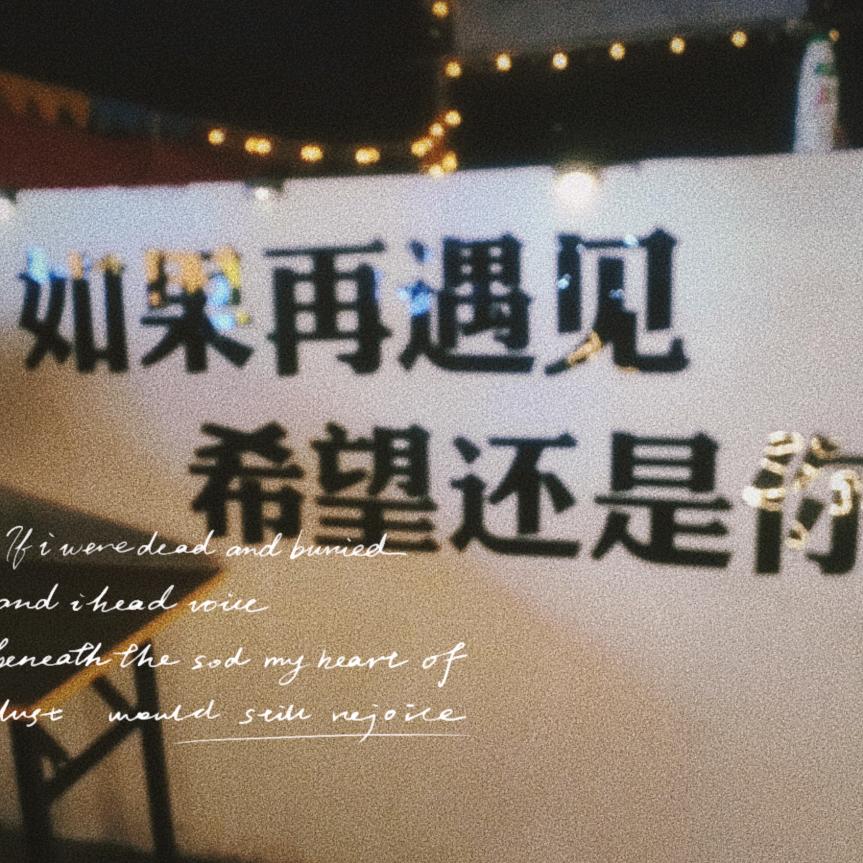 如果再遇见
希望还是你
If i were dead and buried
and i head voice
beneath the sod my heart of
dust would still rejoice